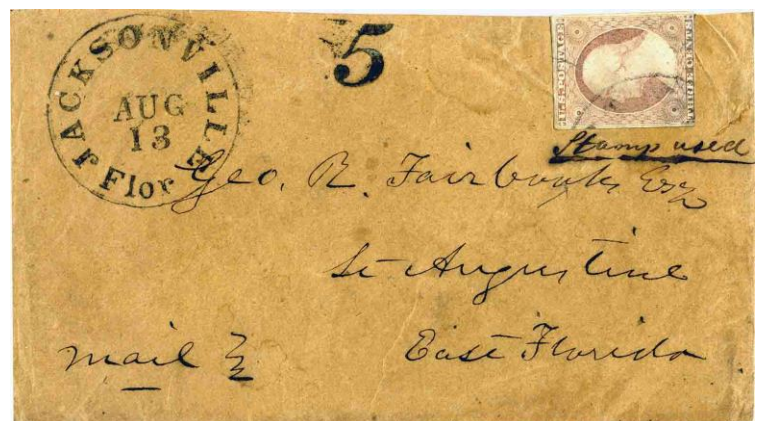 JACKSONVILLE
AUG
13
Flor
5
U.S. POSTAGE
THREE CENTS
Stamp used
Geo. R. Fairbanks Esq
St Augustine
East Florida
mail